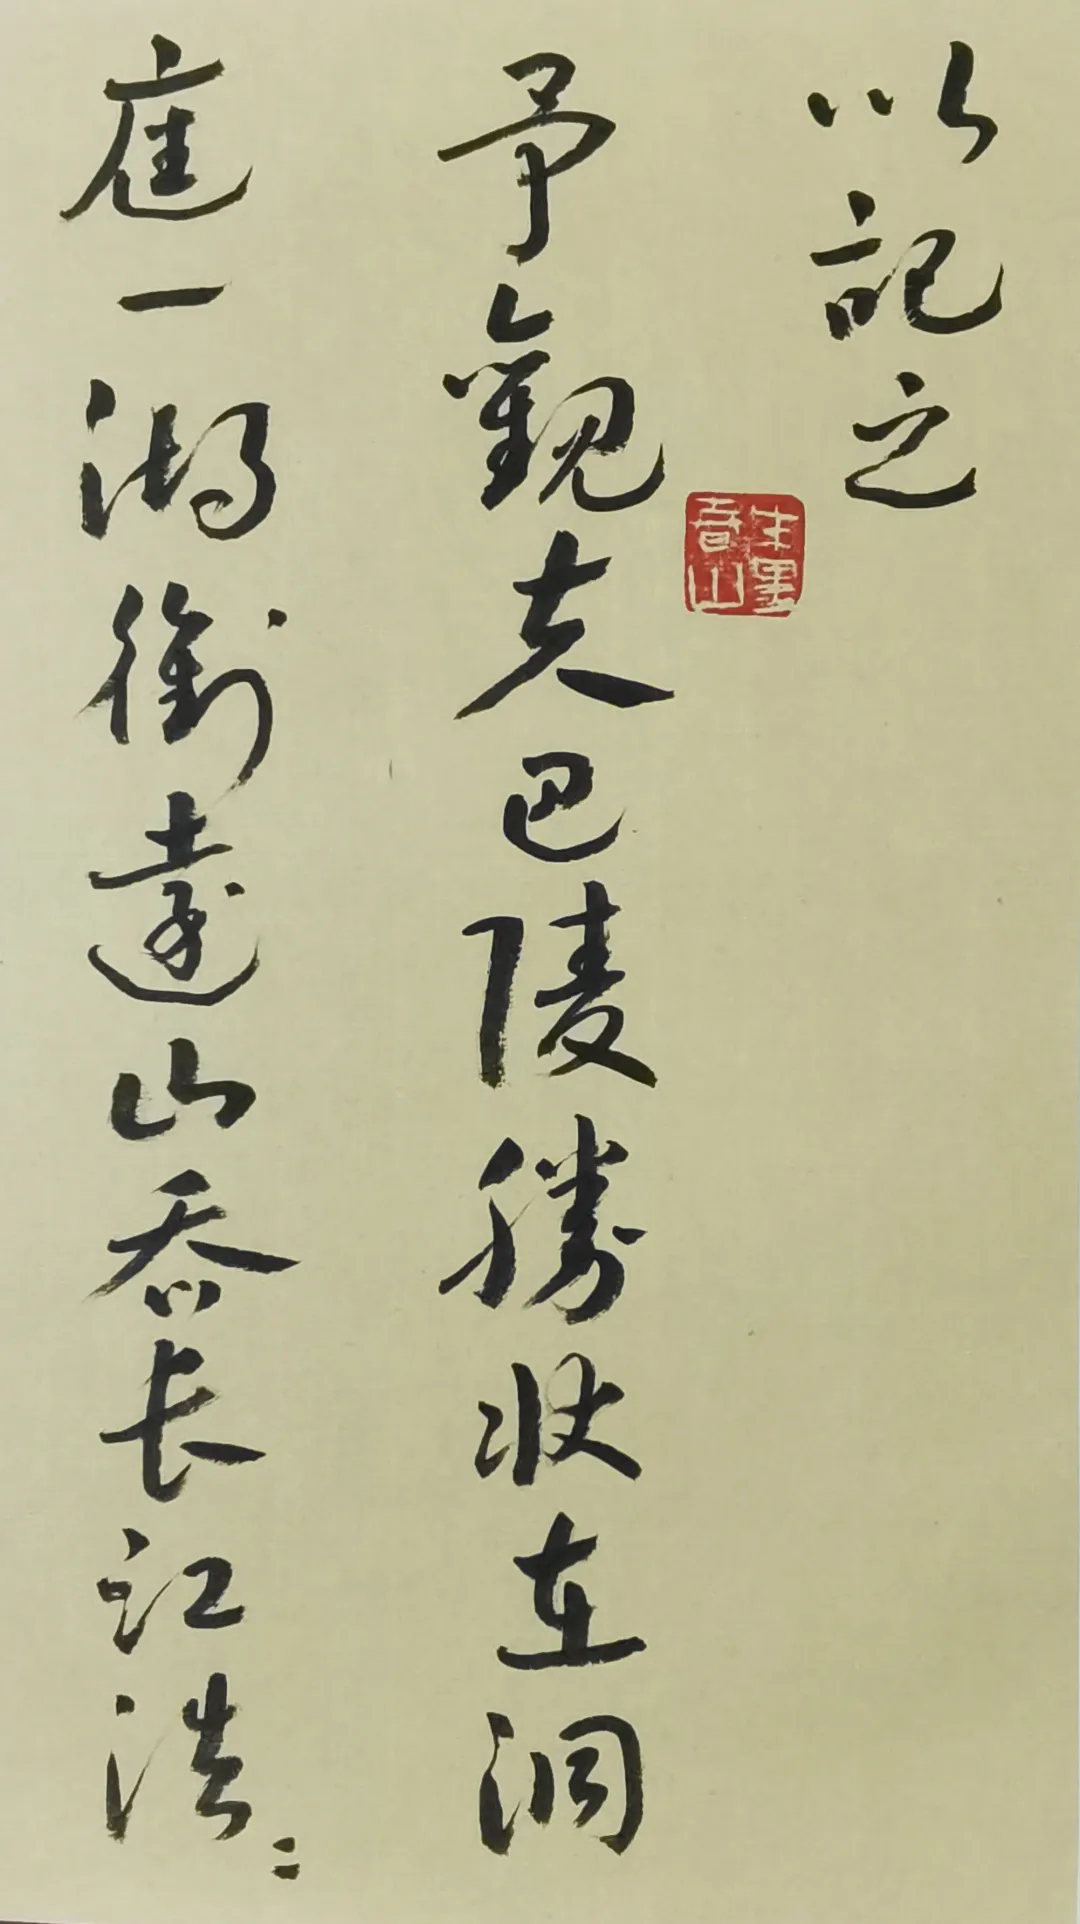 以記之
予觀夫巴陵勝狀在洞
庭一湖銜遠山吞長江浩〻